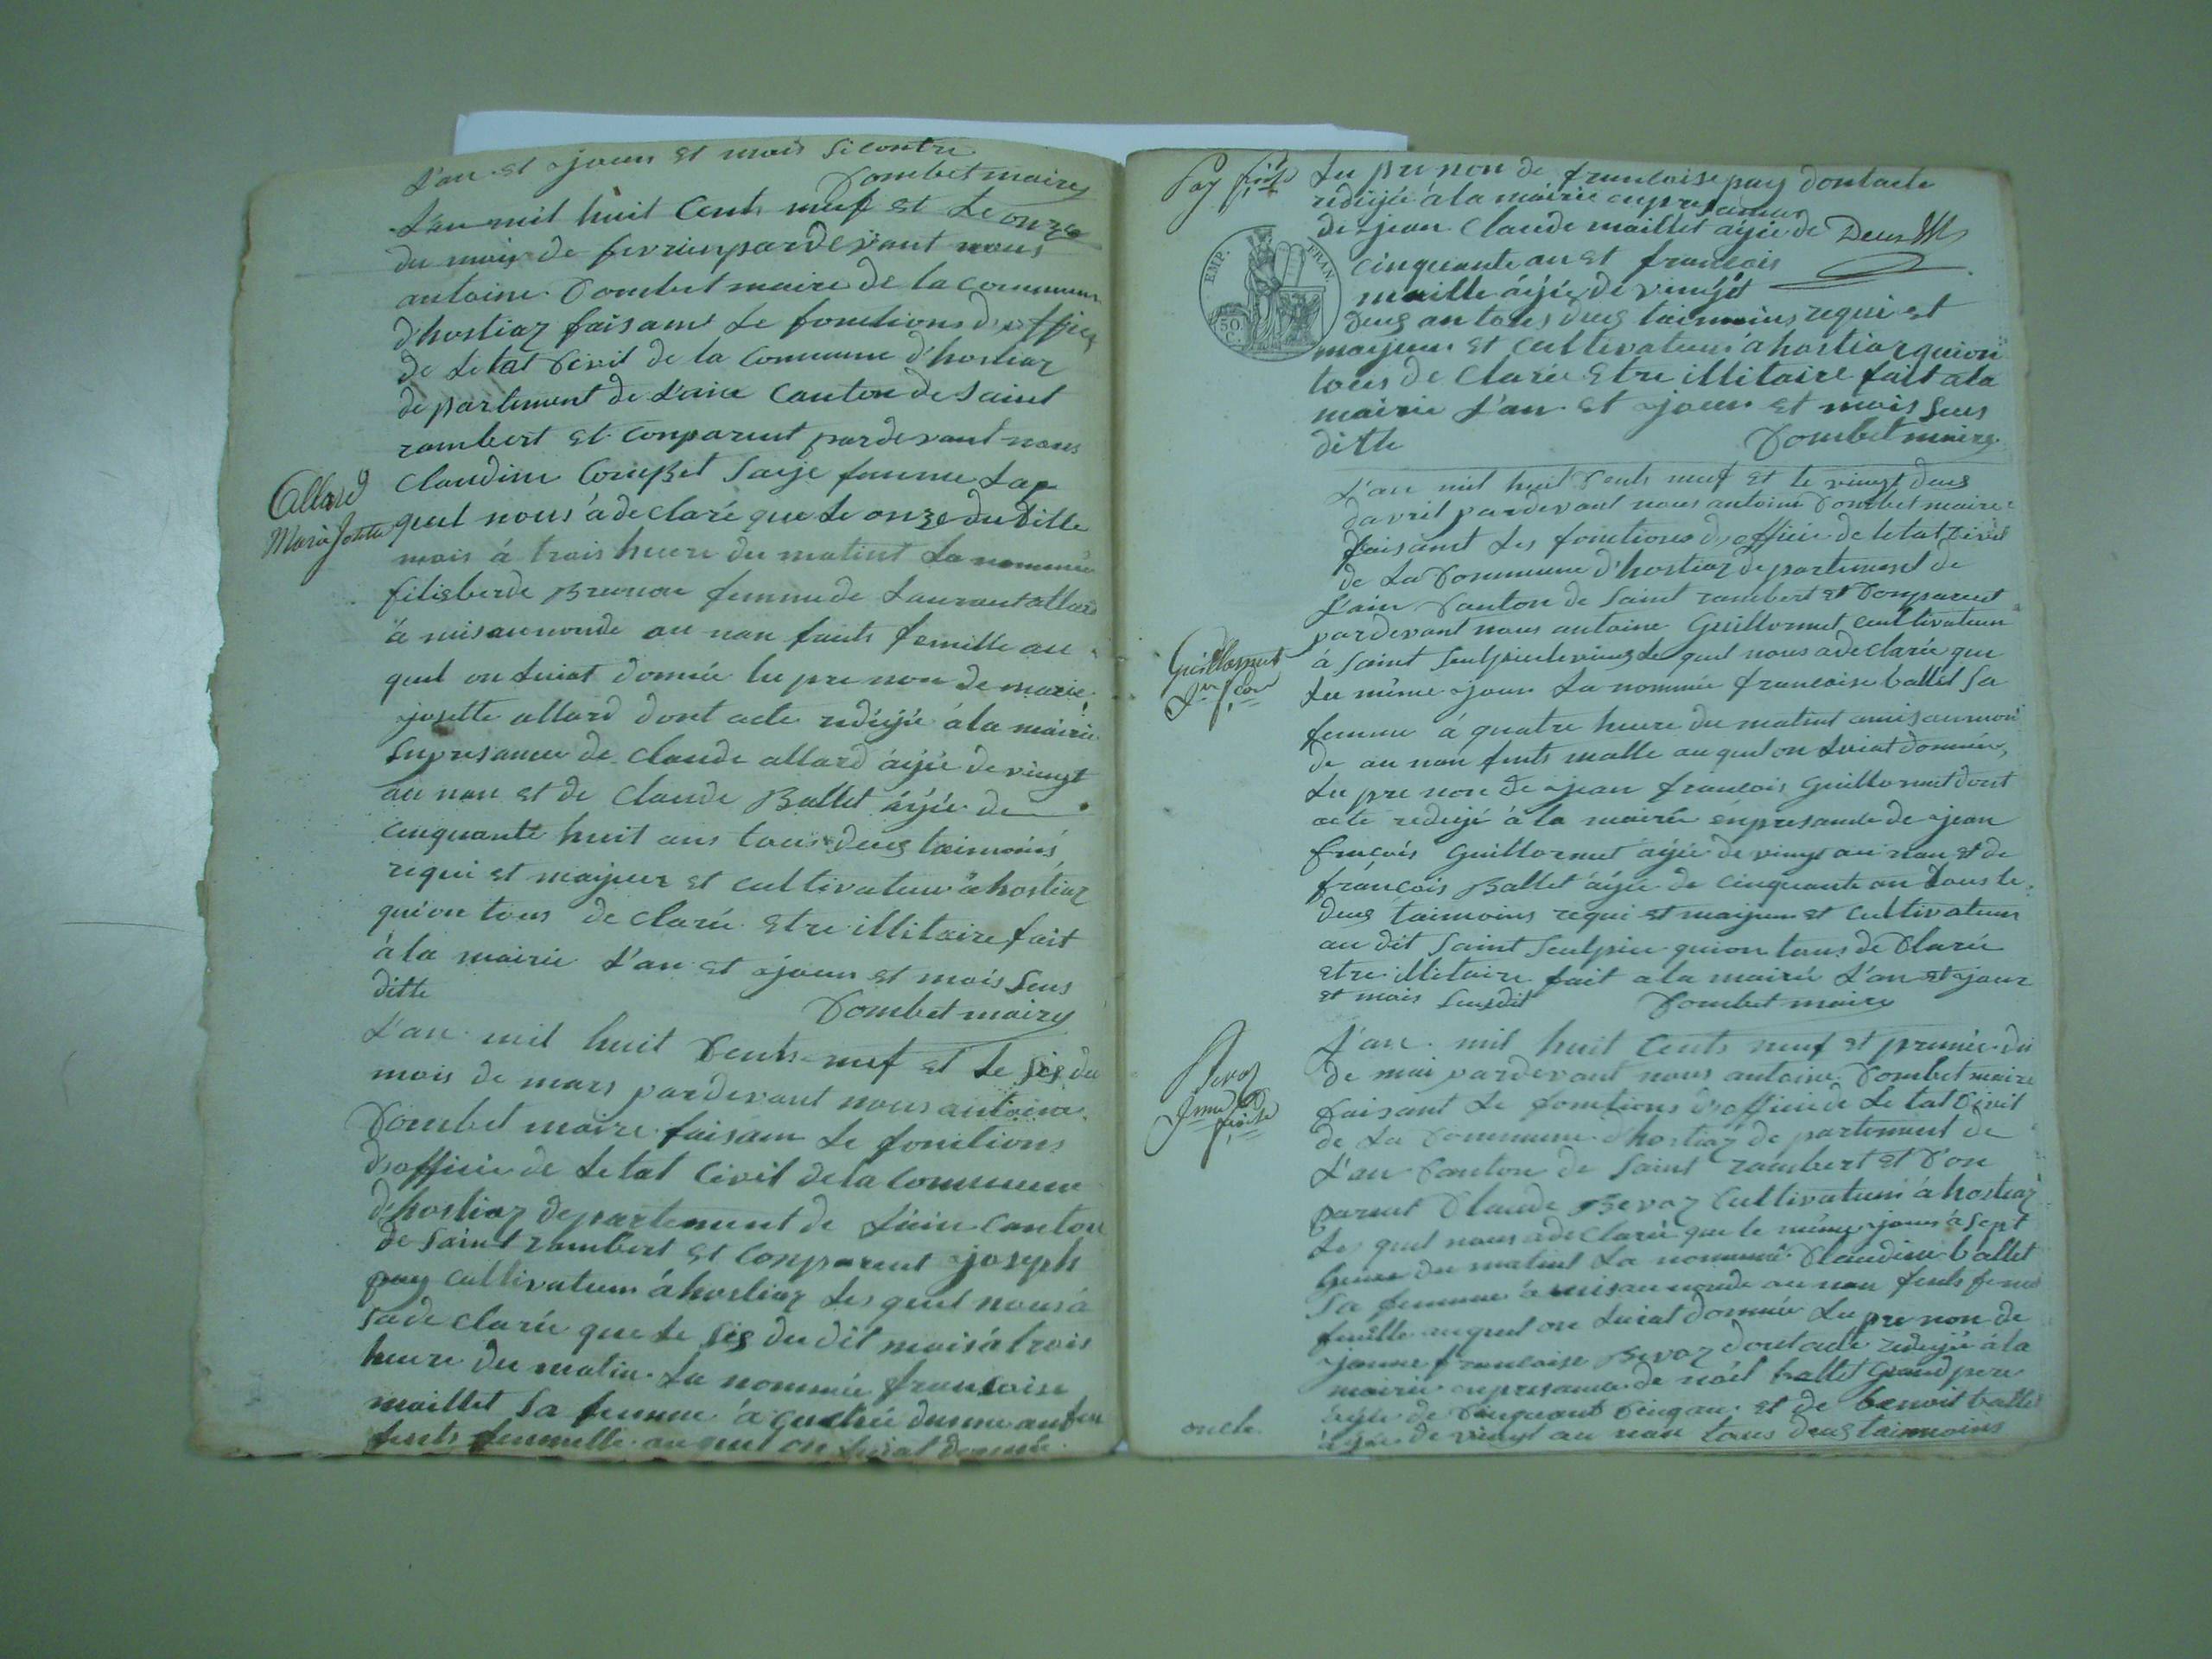 L'an et ajour et mois sicontre
Dombet maire
L'an mil huit Cents neuf et le onze
du mois de fevrier pardevant nous
antoine Dombet maire de la commune
d'hostiaz faisant le fonctions d'officier
de letat Civil de la Commune d'hostiaz
de partement de L'ain Canton de Saint
rambert et Conparut pardevant nous
Claudine Saije famme La
Allard
Marie Josette
quel nous á declaré que le onze du ditte
mois á trois heure du matint La nommée
filisberde Brunon femme de Laurant allard
á mis au monde au nan fants femille au
quel on Luiat donnée lu pre non de marie
josette allard dont acte redigé á la mairie
Enpresance de Claude allard âgée de vingt
au nan et de Claude Ballet âgée de
cinquante huit ans tous deus taimoins
requi et majeur et cultivateur á hostiaz
quion tous de clarée Etre illitaire fait
á la mairie L'an et ajour et mois Sus
ditte
Dombet maire
L'an mil huit Cents neuf et le sis du
mois de mars pardevant nous antoine
Dombet maire faisam le fonctions
d'officier de Letat Civil de la Commune
d'hostiaz departement de L'ain Canton
de Saint rambert et Conparut ajoseph
pay cultivateur á hostiaz Les quel nous á
sade clarée que le sis du dit mois á trois
heure du matin La nommée francoise
maillet Sa femme á
fents femmelle auquel on Luiat donnée
Pay
Lu pre non de francoise pay dontacte
redigée á la mairie enpresance
de jean Claude maillet âgée de
cinquante an et francois
EMP. FRAN
50 C.
maille âgée de vingt
deus an tous deus taimoins requi et
majeur et cultivateur á hostiaz quion
tous de Clarée Etre illitaire fait a la
mairie L'an et ajour et mois Sus
ditte
Dombet maire
L'an mil huit Cents neuf et le vingt deus
davril pardevant nous antoine Dombet maire
faisant Les fonctions d'officier de letat Civil
de La Commune d'hostiaz departement de
L'ain Canton de Saint rambert et Conparut
pardevant nous antoine Guillormet cultivateur
Guillormet
á Saint le quel nous adeclarée que
Lu même ajour La nommée francoise ballet Sa
femme á quatre heure du matint amis aumon
de au nan fents malle au quel on Luiat donnée
Lu pre non de ajean francois Guillormet dont
acte redigé á la mairie enpresance de ajean
francois Guillormet âgée de vingt au nan et de
francois Ballet âgée de cinquante an tous le
deus taimoins requi et majeur et Cultivateur
au dit Saint Sulpice quion tous de Clarée
etre illitaire fait a la mairie L'an et ajour
et mois Susdit
Dombet maire
L'an mil huit Cents neuf et premie du
de mai pardevant nous antoine Dombet maire
Bevoz
faisant Le fonctions d'officier de Le tat Civil
de La Commune d'hostiaz de partement de
L'an Canton de Saint rambert et Con
parut Claude Bevoz Cultivateur á hostiaz
Les quel nous adeclarée que le même ajour á sept
heure du matint La nommée Claudine ballet
Sa femme á mis au monde au nan fents feme
femille auquel on Luiat donnée Lu pre non de
ajeanne francoise Bevoz dontacte redigée á la
mairie enpresance de nöel ballet Grand pere
âgée de Cinquant Cinq an et de benoit ballet
oncle
âgée de vingt au nan tous deus taimoins